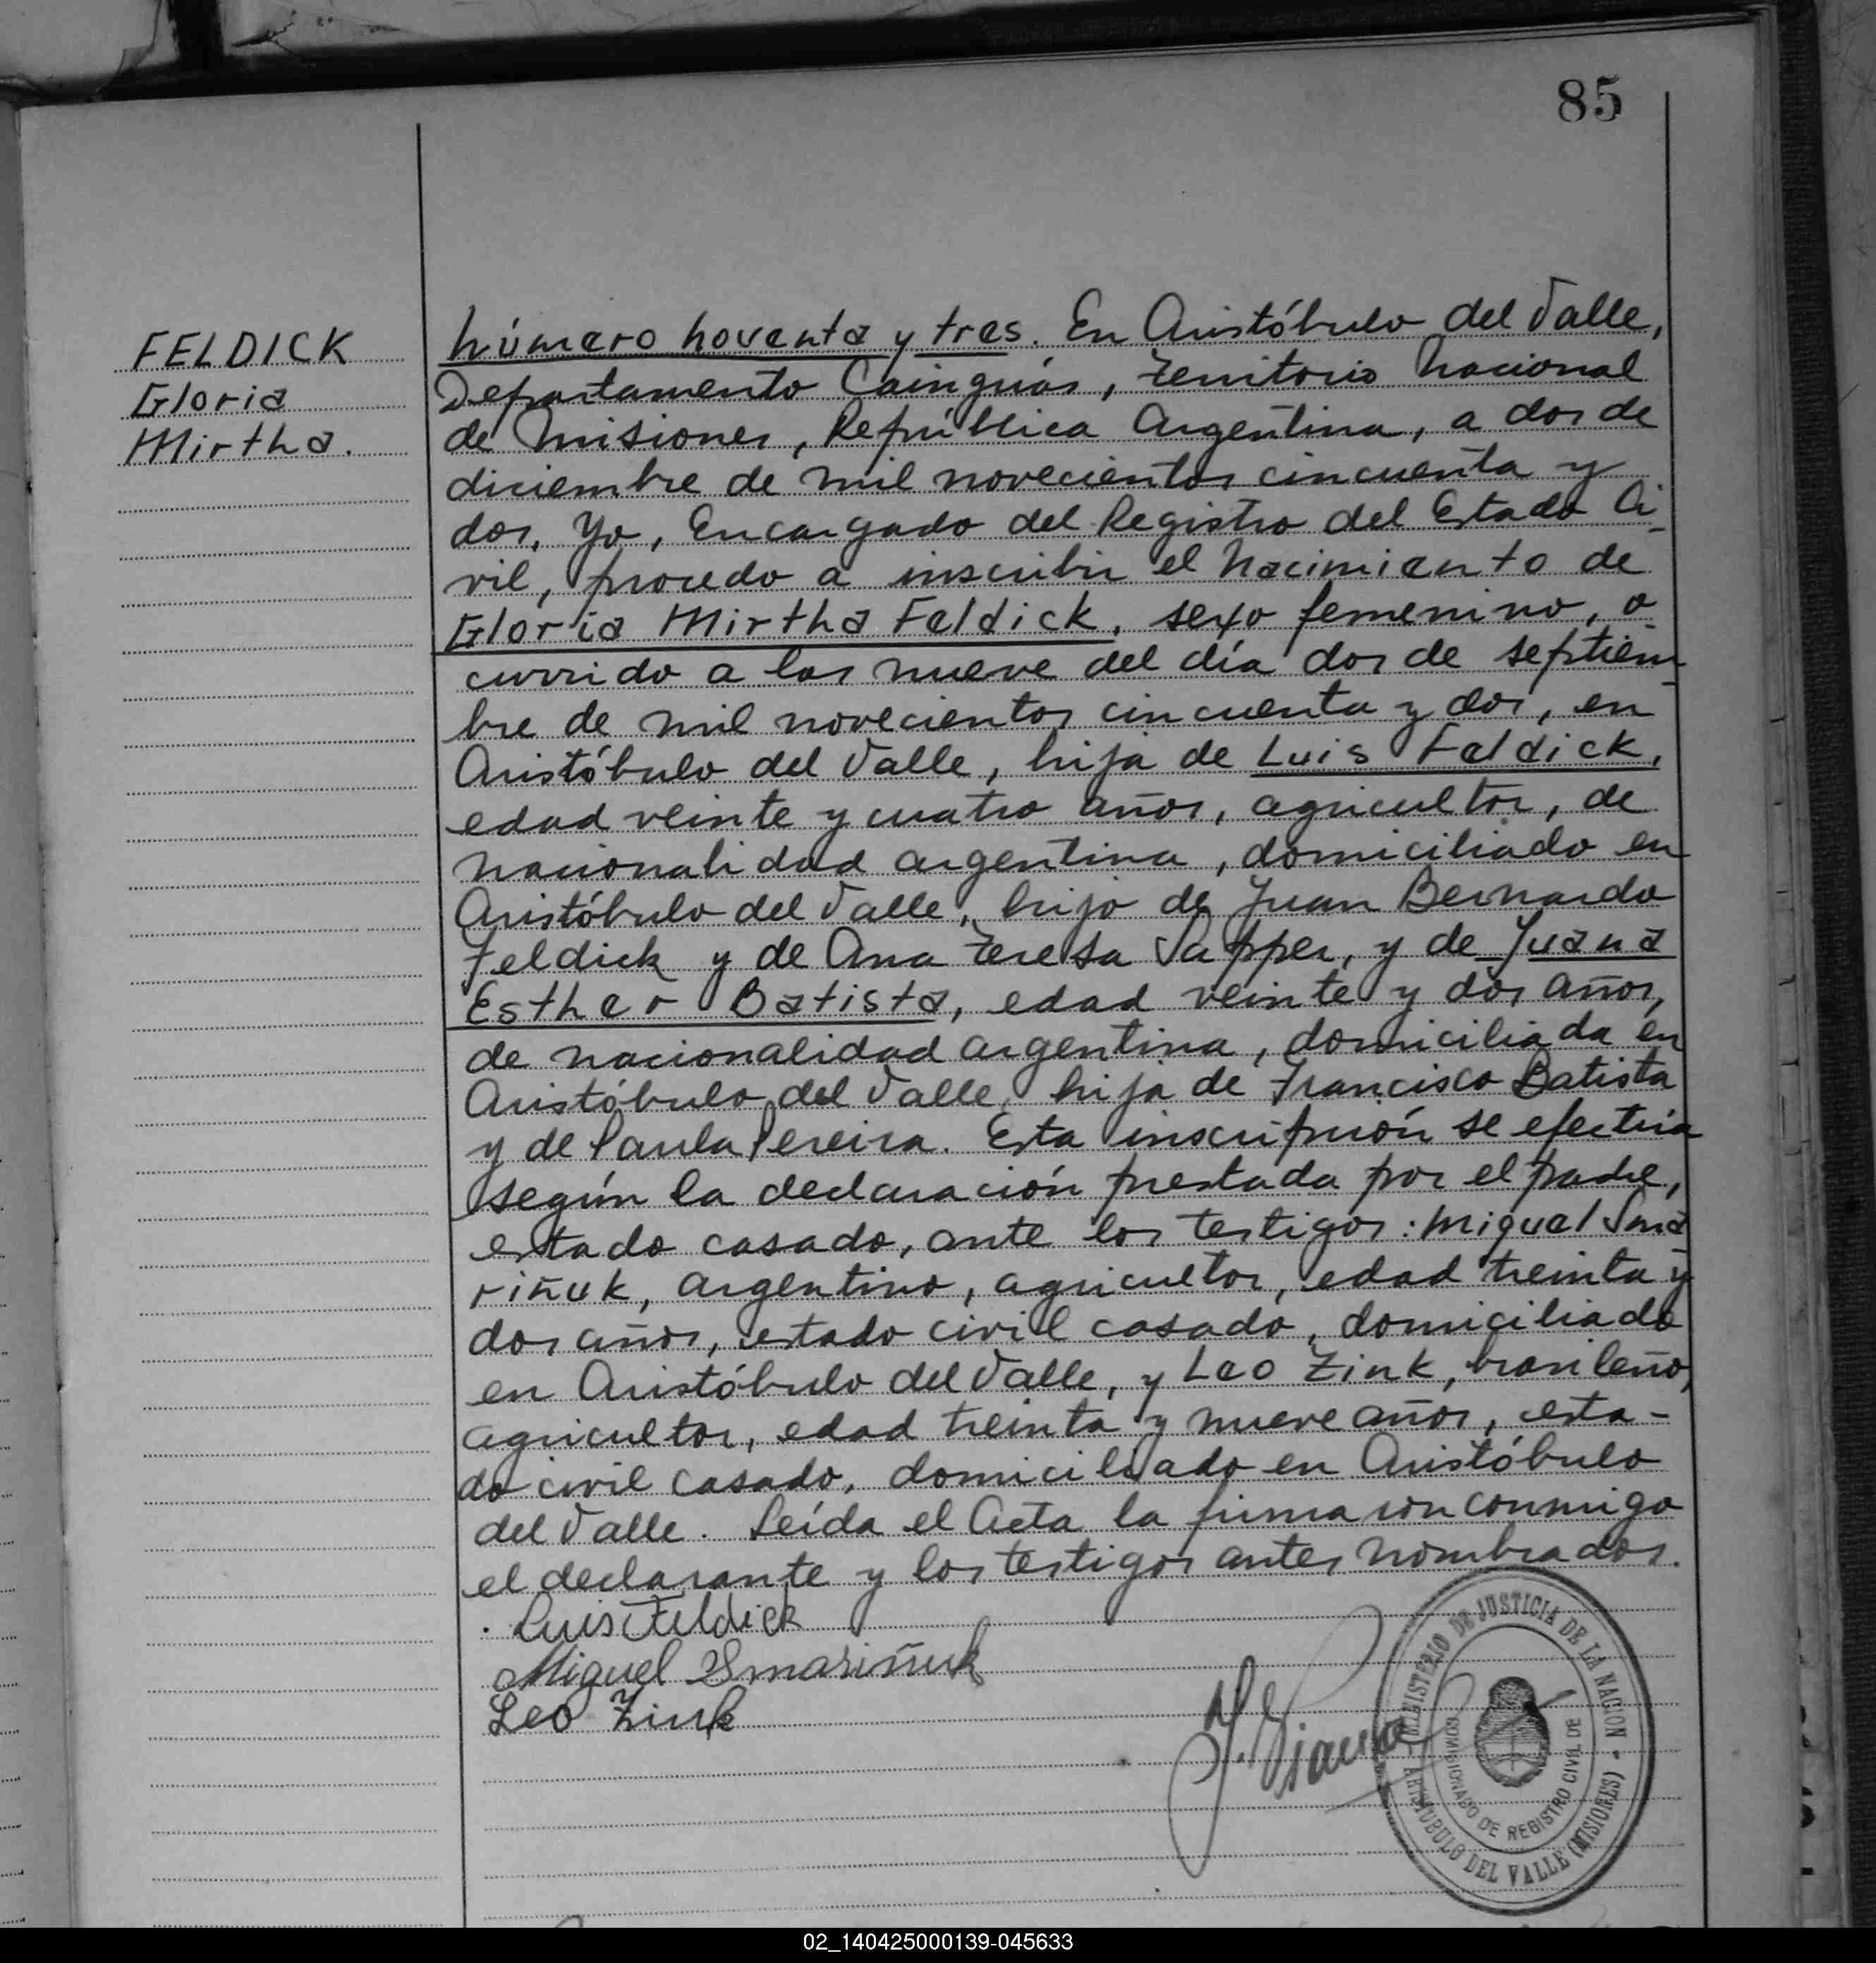 85
FELDICK
Gloria
Mirtha.
Número noventa y tres. En Aristóbulo del Valle,
Departamento Cainguás, Territorio Nacional
de Misiones, República Argentina, a dos de
diciembre de mil novecientos cincuenta y
dos, Yo, Encargado del Registro del Estado Ci-
vil, procedo a inscribir el Nacimiento de
Gloria Mirtha Feldick, sexo femenino, o-
currido a las nueve del día dos de septiem-
bre de mil novecientos cincuenta y dos, en
Aristóbulo del Valle, hija de Luis Feldick,
edad veinte y cuatro años, agricultor, de
nacionalidad argentina, domiciliado en
Aristóbulo del Valle, hijo de Juan Bernardo
Feldick y de Ana Teresa Sapper, y de Juana
Esther Batista, edad veinte y dos años,
de nacionalidad argentina, domiciliada en
Aristóbulo del Valle, hija de Francisco Batista
y de Paula Pereira. Esta inscripción se efectúa
según la declaración prestada por el padre,
estado casado, ante los testigos: Miguel Sma-
riñuk, argentino, agricultor, edad treinta y
dos años, estado civil casado, domiciliado
en Aristóbulo del Valle, y Leo Zink, brasileño,
agricultor, edad treinta y nueve años, esta-
do civil casado, domiciliado en Aristóbulo
del Valle. Leída el Acta la firmaron conmigo
el declarante y los testigos antes nombrados.
Luis Feldick
Miguel Smariñuk
Leo Zink
MINISTERIO DE JUSTICIA DE LA NACION
COMISIONADO DE REGISTRO CIVIL DE
ARISTOBULO DEL VALLE (MISIONES)
02_140425000139-045633